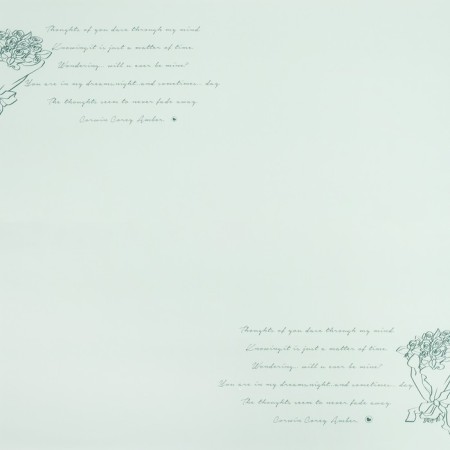 Thoughts of you dare through my mind
Knowing it is just a matter of time
Wondering... will u ever be mine?
You are in my dreams, night and sometimes... day
The thoughts seem to never fade away
Corwin Corey Amber
Thoughts of you dare through my mind
Knowing it is just a matter of time
Wondering... will u ever be mine?
You are in my dreams, night and sometimes... day
The thoughts seem to never fade away
Corwin Corey Amber